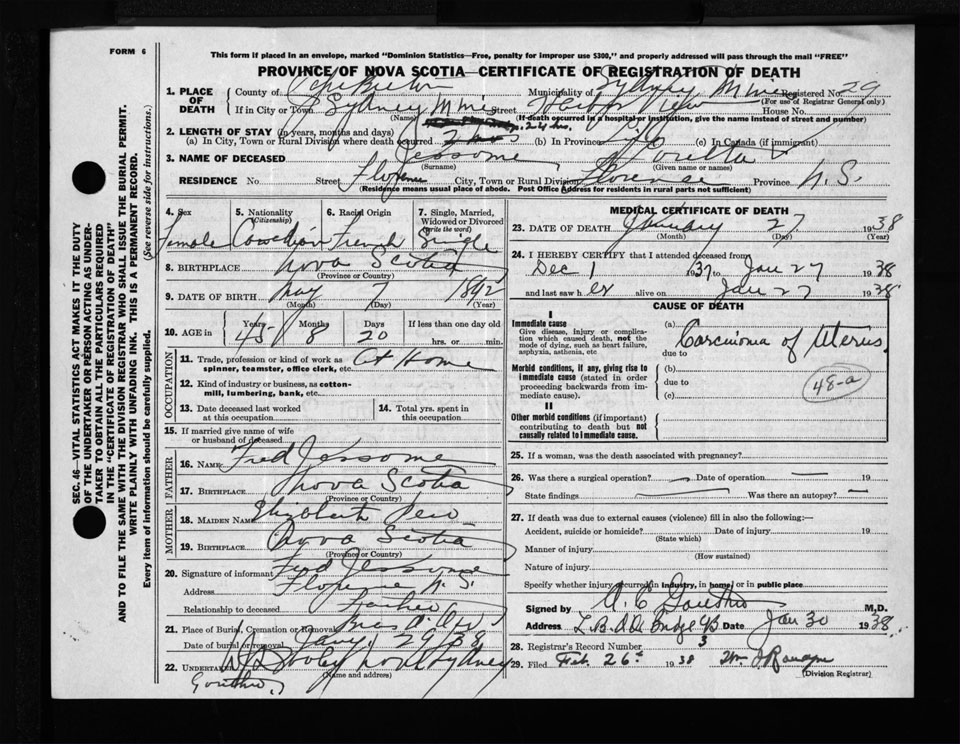 FORM 6
This form if placed in an envelope, marked "Dominion Statistics—Free, penalty for improper use $300," and properly addressed will pass through the mail "FREE"
PROVINCE OF NOVA SCOTIA—CERTIFICATE OF REGISTRATION OF DEATH
1. PLACE OF DEATH
County of Cape Breton Municipality of Sydney Mines Registered No. 29
(For use of Registrar General only)
If in City or Town Sydney Mines Street Harbor View House No.
(Name) (If death occurred in a hospital or institution, give the name instead of street and number)
2. LENGTH OF STAY (in years, months and days) 24 hrs.
(a) In City, Town or Rural Division where death occurred (b) In Province (c) In Canada (if immigrant)
3. NAME OF DECEASED Jessome
(Surname) (Given name or names)
RESIDENCE No. Street Florence City, Town or Rural Division Florence Province N.S.
(Residence means usual place of abode. Post Office Address for residents in rural parts not sufficient)
SEC. 46—VITAL STATISTICS ACT MAKES IT THE DUTY
OF THE UNDERTAKER OR PERSON ACTING AS UNDER-
TAKER TO OBTAIN ALL THE PARTICULARS REQUIRED
IN THE "CERTIFICATE OF REGISTRATION OF DEATH"
AND TO FILE THE SAME WITH THE DIVISION REGISTRAR WHO SHALL ISSUE THE BURIAL PERMIT.
WRITE PLAINLY WITH UNFADING INK. THIS IS A PERMANENT RECORD.
Every item of information should be carefully supplied. (See reverse side for instructions.)
4. Sex 5. Nationality 6. Racial Origin 7. Single, Married,
(Citizenship) Widowed or Divorced
(Write the word)
Female Canadian French Single
8. BIRTHPLACE Nova Scotia
(Province or Country)
9. DATE OF BIRTH May 7 1892
(Month) (Day) (Year)
10. AGE in Years Months Days If less than one day old
45 8 20 hrs. or min.
OCCUPATION
11. Trade, profession or kind of work as At Home
spinner, teamster, office clerk, etc.
12. Kind of industry or business, as cotton-
mill, lumbering, bank, etc.
13. Date deceased last worked 14. Total yrs. spent in
at this occupation this occupation
15. If married give name of wife
or husband of deceased
FATHER
16. NAME Fred Jessome
17. BIRTHPLACE Nova Scotia
(Province or Country)
MOTHER
18. MAIDEN NAME Elizabeth
19. BIRTHPLACE Nova Scotia
(Province or Country)
20. Signature of informant Fred Jessome
Address Florence N.S.
Relationship to deceased Father
21. Place of Burial, Cremation or Removal Bras d'Or
Date of burial or removal Jany. 29 38
22. UNDERTAKER Sydney
(Name and address)
MEDICAL CERTIFICATE OF DEATH
23. DATE OF DEATH January 27 1938
(Month) (Day) (Year)
24. I HEREBY CERTIFY that I attended deceased from
Dec 1 1937 to Jan 27 1938
and last saw her alive on Jan 27 1938
CAUSE OF DEATH
I
Immediate cause
Give disease, injury or complica-
tion which caused death, not the
mode of dying, such as heart failure,
asphyxia, asthenia, etc
(a) Carcinoma of Uterus.
due to
Morbid conditions, if any, giving rise to
immediate cause (stated in order
proceeding backwards from im-
mediate cause).
(b)
due to
(c)
48-a
II
Other morbid conditions (if important)
contributing to death but not
causally related to immediate cause.
25. If a woman, was the death associated with pregnancy?
26. Was there a surgical operation? Date of operation 19
State findings Was there an autopsy?
27. If death was due to external causes (violence) fill in also the following:—
Accident, suicide or homicide? Date of injury 19
(State which)
Manner of injury
(How sustained)
Nature of injury
Specify whether injury occurred in industry, in home, or in public place
Signed by M.D.
Address Date Jan 30 1938.
28. Registrar's Record Number 3
29. Filed Feb. 26 1938 Wm
(Division Registrar)